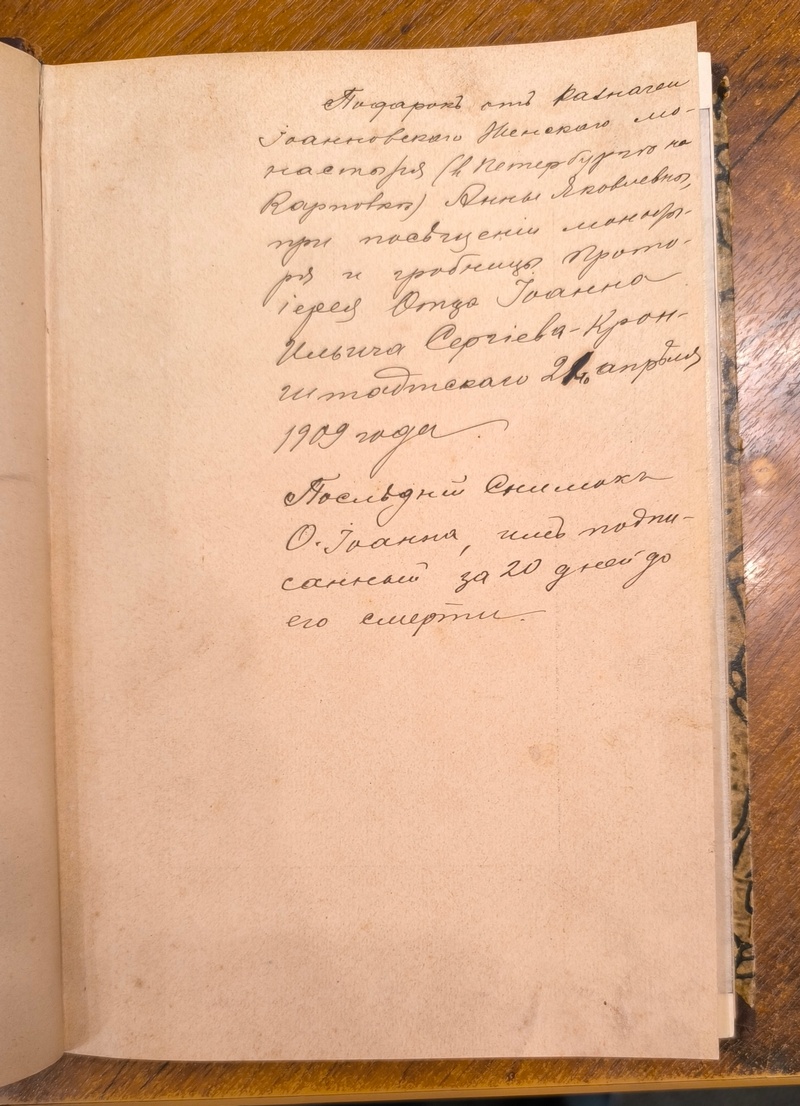 Подарокъ отъ казначеи
Іоанновскаго Женскаго мо-
настыря (в Петербургѣ на
Карповкѣ) Анны Яковлевны,
при посѣщеніи монасты-
ря и гробницы Прото-
іерея Отца Іоанна
Ильича Сергіева-Крон-
штадтскаго апрѣля
1909 года.
Послѣдній Снимокъ
О. Іоанна, имъ подпи-
санный за 20 дней до
его смерти.